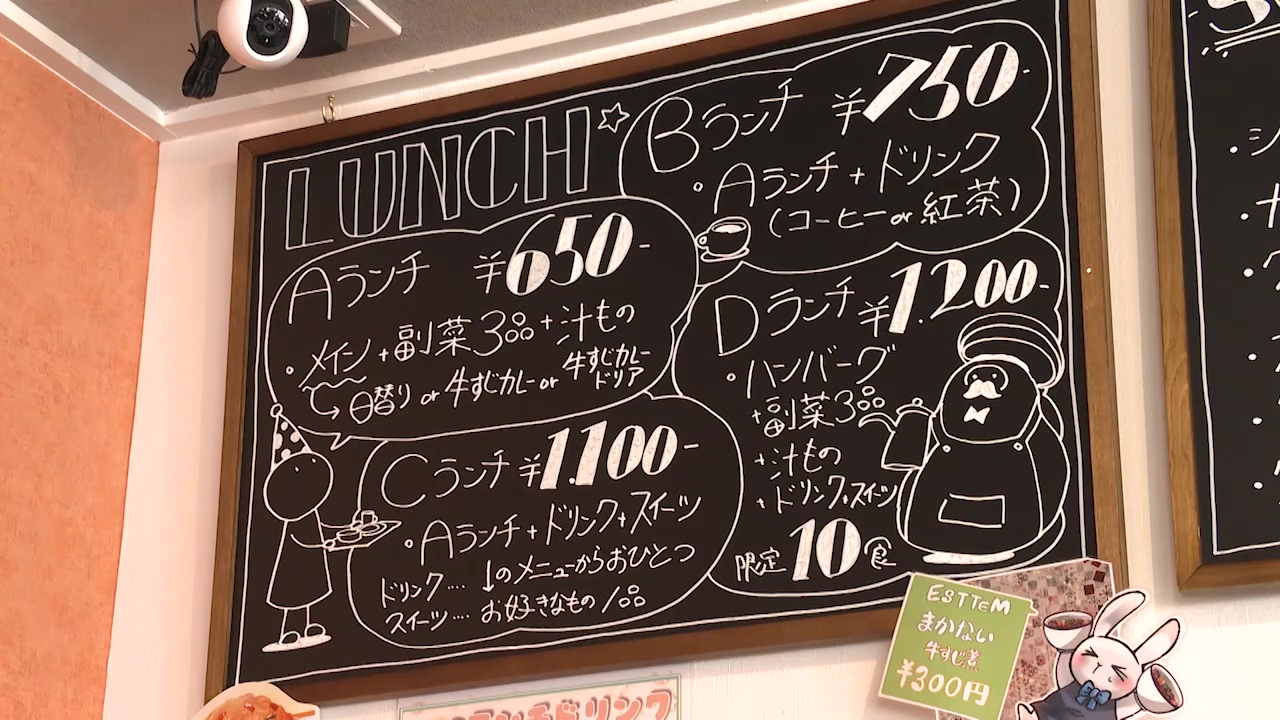 LUNCH☆
Aランチ ¥650-
・メイン+副菜3品+汁もの
→日替り or 牛すじカレー or 牛すじカレードリア
Bランチ ¥750-
・Aランチ+ドリンク
(コーヒー or 紅茶)
Cランチ ¥1.100-
・Aランチ+ドリンク+スイーツ
ドリンク…. ↓のメニューからおひとつ
スイーツ…. お好きなもの1品
Dランチ ¥1.200-
・ハンバーグ
+副菜3品
+汁もの
+ドリンク+スイーツ
限定10食
ESTTEM
まかない
牛すじ煮
¥300円
ランチドリンク